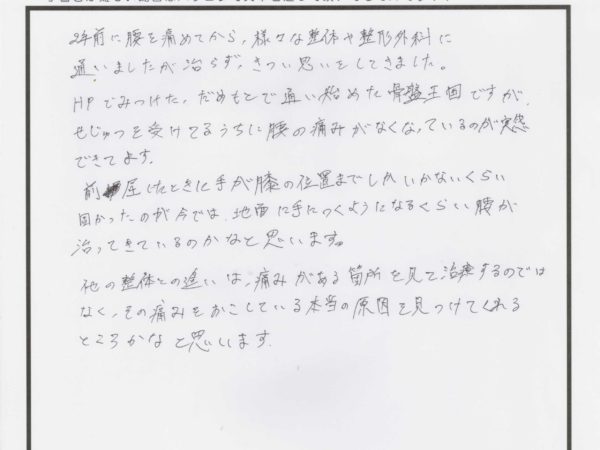 2年前に腰を痛めてから、様々な整体や整形外科に
通いましたが治らず、きつい思いをしてきました。
HPでみつけた、だめもとで通い始めた骨盤王国ですが、
せじゅつを受けてるうちに腰の痛みがなくなっているのが実感
できてます。
前屈したときに手が膝の位置までしかいかないくらい
固かったのが今では、地面に手につくようになるくらい腰が
治ってきているのかなと思います。
他の整体との違いは、痛みがある箇所を見て治療するのでは
なく、その痛みをおこしている本当の原因を見つけてくれる
ところかなと思います。